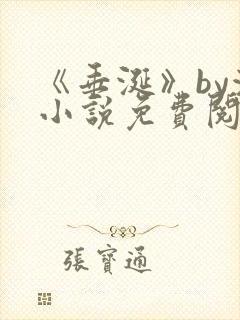 《垂涎》by
小説免費閱
張寶通